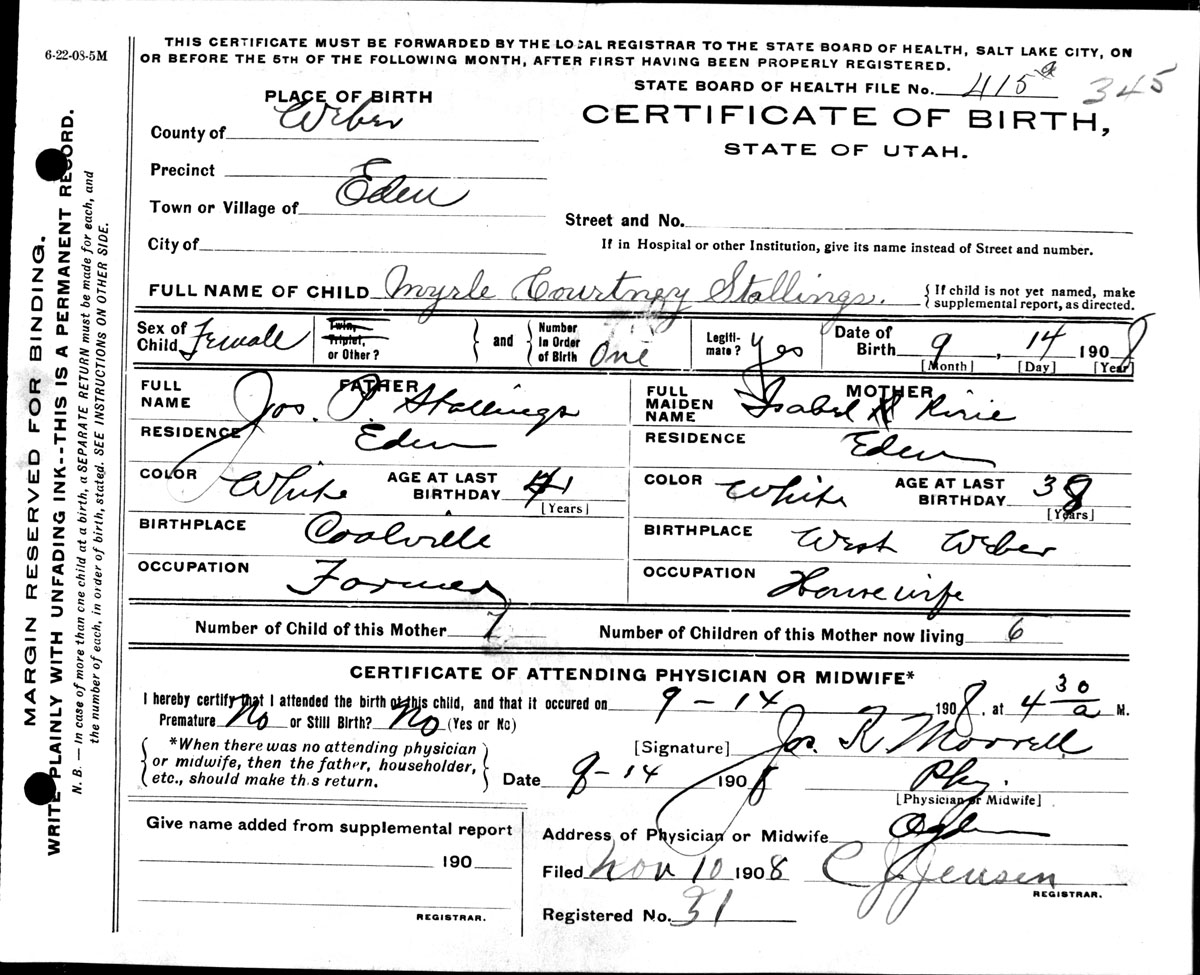 6-22-08-5M
THIS CERTIFICATE MUST BE FORWARDED BY THE LOCAL REGISTRAR TO THE STATE BOARD OF HEALTH, SALT LAKE CITY, ON
OR BEFORE THE 5TH OF THE FOLLOWING MONTH, AFTER FIRST HAVING BEEN PROPERLY REGISTERED.
STATE BOARD OF HEALTH FILE No. 415 a 345
CERTIFICATE OF BIRTH,
STATE OF UTAH.
PLACE OF BIRTH
County of Weber
Precinct
Town or Village of Eden
Street and No.
City of
If in Hospital or other Institution, give its name instead of Street and number.
FULL NAME OF CHILD Myrle Courtney Stallings. { If child is not yet named, make
supplemental report, as directed.
Sex of Child Female Twin, Triplet, or Other? } and { Number in Order of Birth One Legiti-mate? yes Date of Birth 9, 14 1908
[Month] [Day] [Year]
FATHER
FULL NAME Jos. P. Stallings
RESIDENCE Eden
COLOR White AGE AT LAST BIRTHDAY 41
[Years]
BIRTHPLACE Coalville
OCCUPATION Farmer
MOTHER
FULL MAIDEN NAME Isabel H Ririe
RESIDENCE Eden
COLOR White AGE AT LAST BIRTHDAY 38
[Years]
BIRTHPLACE West Weber
OCCUPATION Housewife
Number of Child of this Mother 7 Number of Children of this Mother now living 6
CERTIFICATE OF ATTENDING PHYSICIAN OR MIDWIFE*
I hereby certify that I attended the birth of this child, and that it occured on 9-14 1908, at 4 30 a M.
Premature No or Still Birth? No (Yes or No)
{ *When there was no attending physician
or midwife, then the father, householder,
etc., should make this return. }
[Signature] Jos. R. Morrell
Date 9-14 1908 Phy.
[Physician or Midwife]
Address of Physician or Midwife Ogden
Filed Nov 10 1908 C J Jensen
REGISTRAR.
Registered No. 31
Give name added from supplemental report
190
REGISTRAR.
MARGIN RESERVED FOR BINDING.
WRITE PLAINLY WITH UNFADING INK--THIS IS A PERMANENT RECORD.
N. B. — In case of more than one child at a birth, a SEPARATE RETURN must be made for each, and
the number of each, in order of birth, stated. SEE INSTRUCTIONS ON OTHER SIDE.